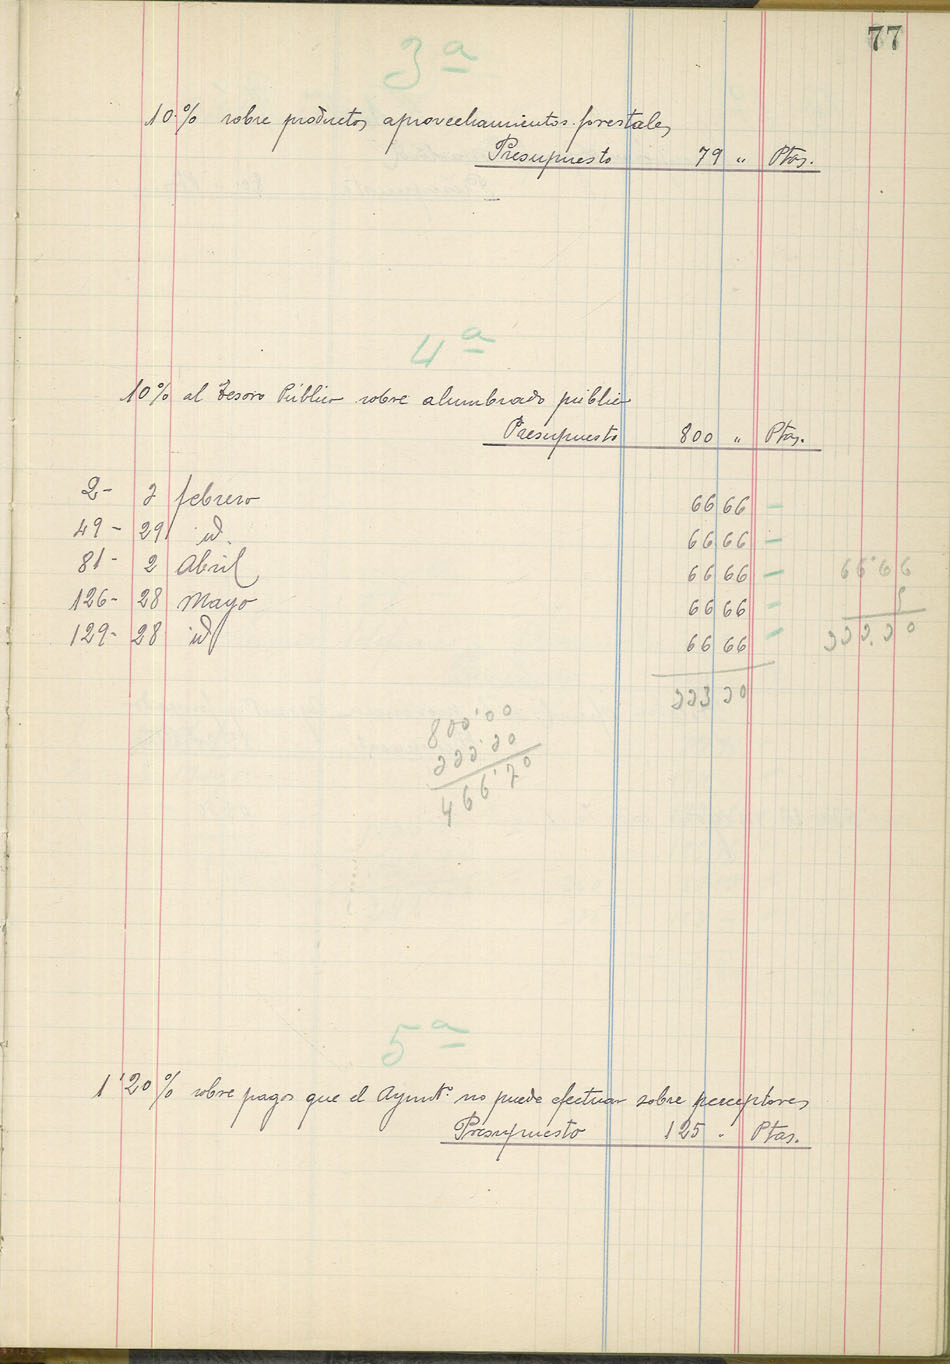 77
3ª
10 % sobre productos aprovechamientos forestales
Presupuesto 79 " Ptas.
4ª
10 % al Tesoro Público sobre alumbrado público
Presupuesto 800 " Ptas.
2- 2 febrero 66 66 -
49- 29 id. 66 66 -
81- 2 Abril 66 66 -
126- 28 Mayo 66 66 -
129- 28 id 66 66 -
66'66
5
333.30
333 30
800'00
333'30
466'70
5ª
1'20 % sobre pagos que el Ayuntº. no puede efectuar sobre perceptores
Presupuesto 125 " Ptas.